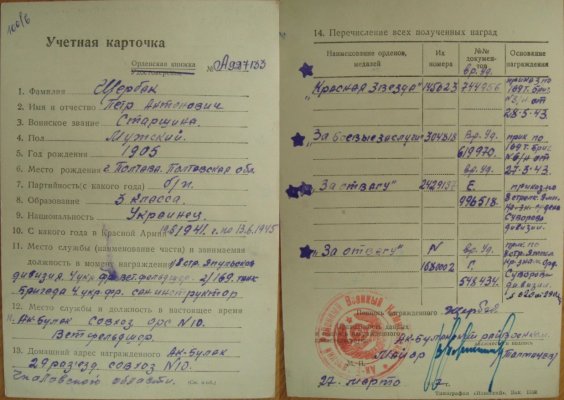 Учетная карточка
Орденская книжка
Удостоверение № А927133
1. Фамилия Щербак
2. Имя и отчество Петр Антонович
3. Воинское звание Старшина
4. Пол Мужский.
5. Год рождения 1905
6. Место рождения г. Полтава. Полтавская обл.
7. Партийность (с какого года) б/п.
8. Образование 3 класса.
9. Национальность Украинец.
10. С какого года в Красной Армии 1941 г. по 13.6.1945
11. Место службы (наименование части) и занимаемая
должность в момент награждения
дивизия. 4 укр. фр. вет. фельдшер. 2/169. танк.
бригада 4. укр. фр. сан. инструктор
12. Место службы и должность в настоящее время
Ак-Булак совхоз орс №10.
Ветфельдшер.
13. Домашний адрес награжденного Ак-Булак
29 разезд. совхоз №10.
Чкаловской области.
(См. на об.)
14. Перечисление всех полученных наград
Наименование орденов, медалей
Их номера
№№ документов
Основание награждения
"Красная Звезда" 145623 вр. уд. 744956 приказ по 169 т. бриг. от 28-5-43
"За боевые заслуги" 304818 Вр. уд. 619970. прик по 169 т. бриг. от 27-3-43.
"За отвагу" 2429138 вр. уд. Е. 996518. приказ по Суворова дивизии.
"За отвагу" N 1680002 вр. уд. Г. 548.434. прик. по Суворова дивизии.
Подпись награжденного Щербак
Ак-Булакский райвоенком.
Майор
27. марта
Типография